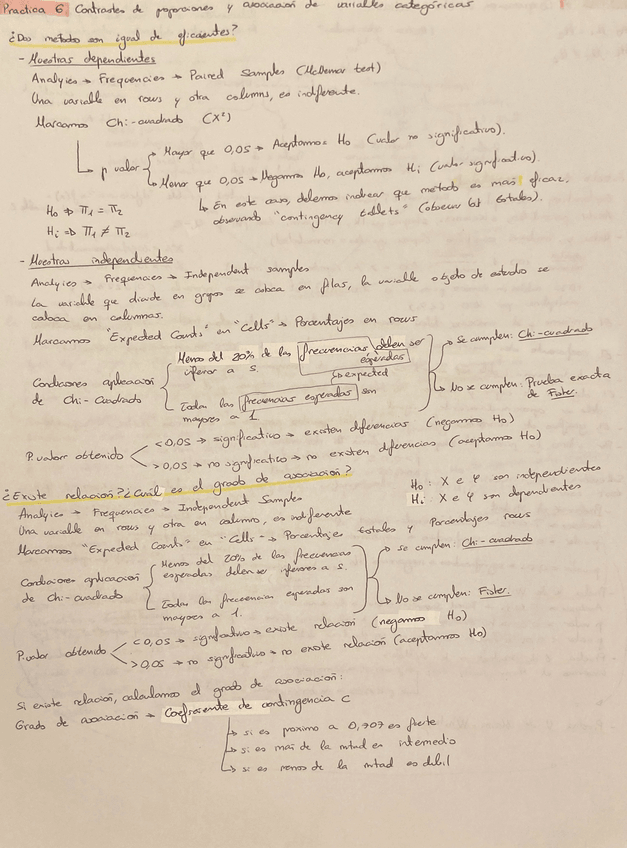 Practica 6 Contrastes de proporciones y asociación de variables categóricas
¿Dos métodos son igual de eficientes?
- Muestras dependientes
Analyies → Frequencies → Paired Samples (McNemar test)
Una variable en rows y otra columns, es indiferente.
Marcamos Chi-cuadrado (X²)
p valor
Mayor que 0,05 → Aceptamos Ho (valor no significativo).
Menor que 0,05 → Negamos Ho, aceptamos Hi (valor significativo).
↳ En este caso, debemos indicar que metodo es más eficaz,
observando "contingency tablets" (observar los totales).
Ho ⇒ π1 = π2
Hi ⇒ π1 ≠ π2
- Muestras independientes
Analyies → Frequencies → Independent samples
La variable que divide en grupos se coloca en filas, la variable objeto de estudio se
coloca en columnas.
Marcamos "Expected Counts" en "Cells" → Porcentajes en rows
Condiciones aplicación
de Chi-cuadrado
Menos del 20% de las frecuencias esperadas deben ser
inferior a 5.
↳ expected
Todas las frecuencias esperadas son
mayores a 1
Se cumplen: Chi-cuadrado
No se cumplen: Prueba exacta
de Fister.
P.valor obtenido
<0,05 → significativo → existen diferencias (negamos Ho)
>0,05 → no significativo → no existen diferencias (aceptamos Ho)
¿Existe relación? ¿Cuál es el grado de asociación?
Ho: X e Y son independientes
Hi: X e Y son dependientes
Analyies → Frequencies → Independent Samples
Una variable en rows y otra en column, es indiferente
Marcamos "Expeded Counts" en "Cells" → Porcentajes totales y Porcentajes rows
Condiciones aplicación
de Chi-cuadrado
Menos del 20% de las frecuencias
esperadas deben ser inferiores a 5.
Todas las frecuencias esperadas son
mayores a 1.
Se cumplen: Chi-cuadrado
No se cumplen: Fister.
P.valor obtenido
<0,05 → significativo → existe relación (negamos Ho)
>0,05 → no significativo → no existe relación (aceptamos Ho)
Si existe relación, calculamos el grado de asociación:
Grado de asociación → Coeficiente de contingencia C
↳ si es proximo a 0,707 es fuerte
↳ si es mas de la mitad es intermedio
↳ si es menos de la mitad es débil